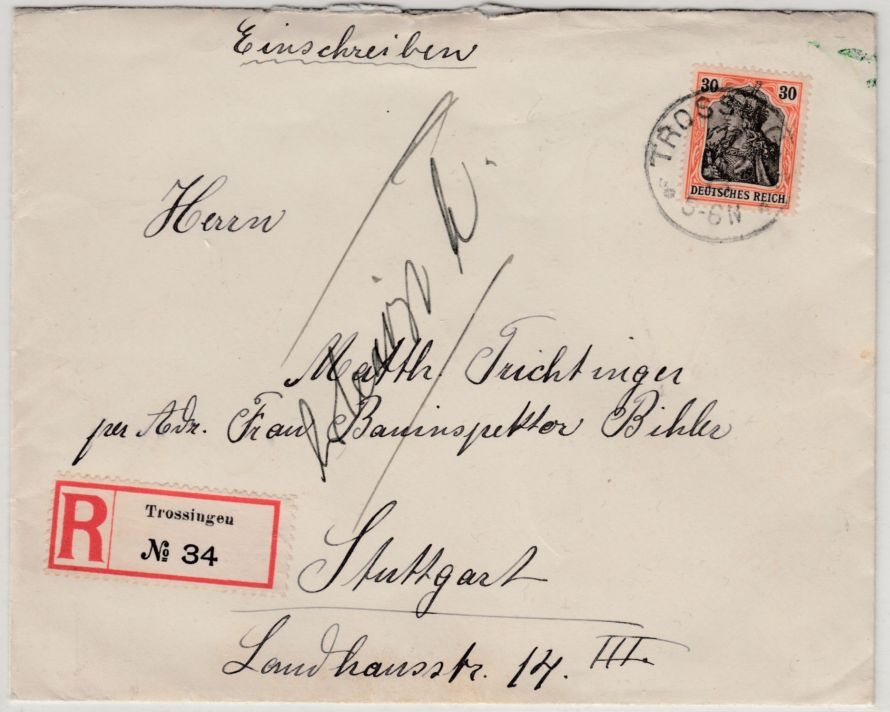 Einschreiben
30 30
DEUTSCHES REICH
5-6 N
Herrn
Matth. Trichtinger
per Adr. Frau Bauinspektor Bihler
R Trossingen
№ 34
Stuttgart
Landhausstr. 14. III.